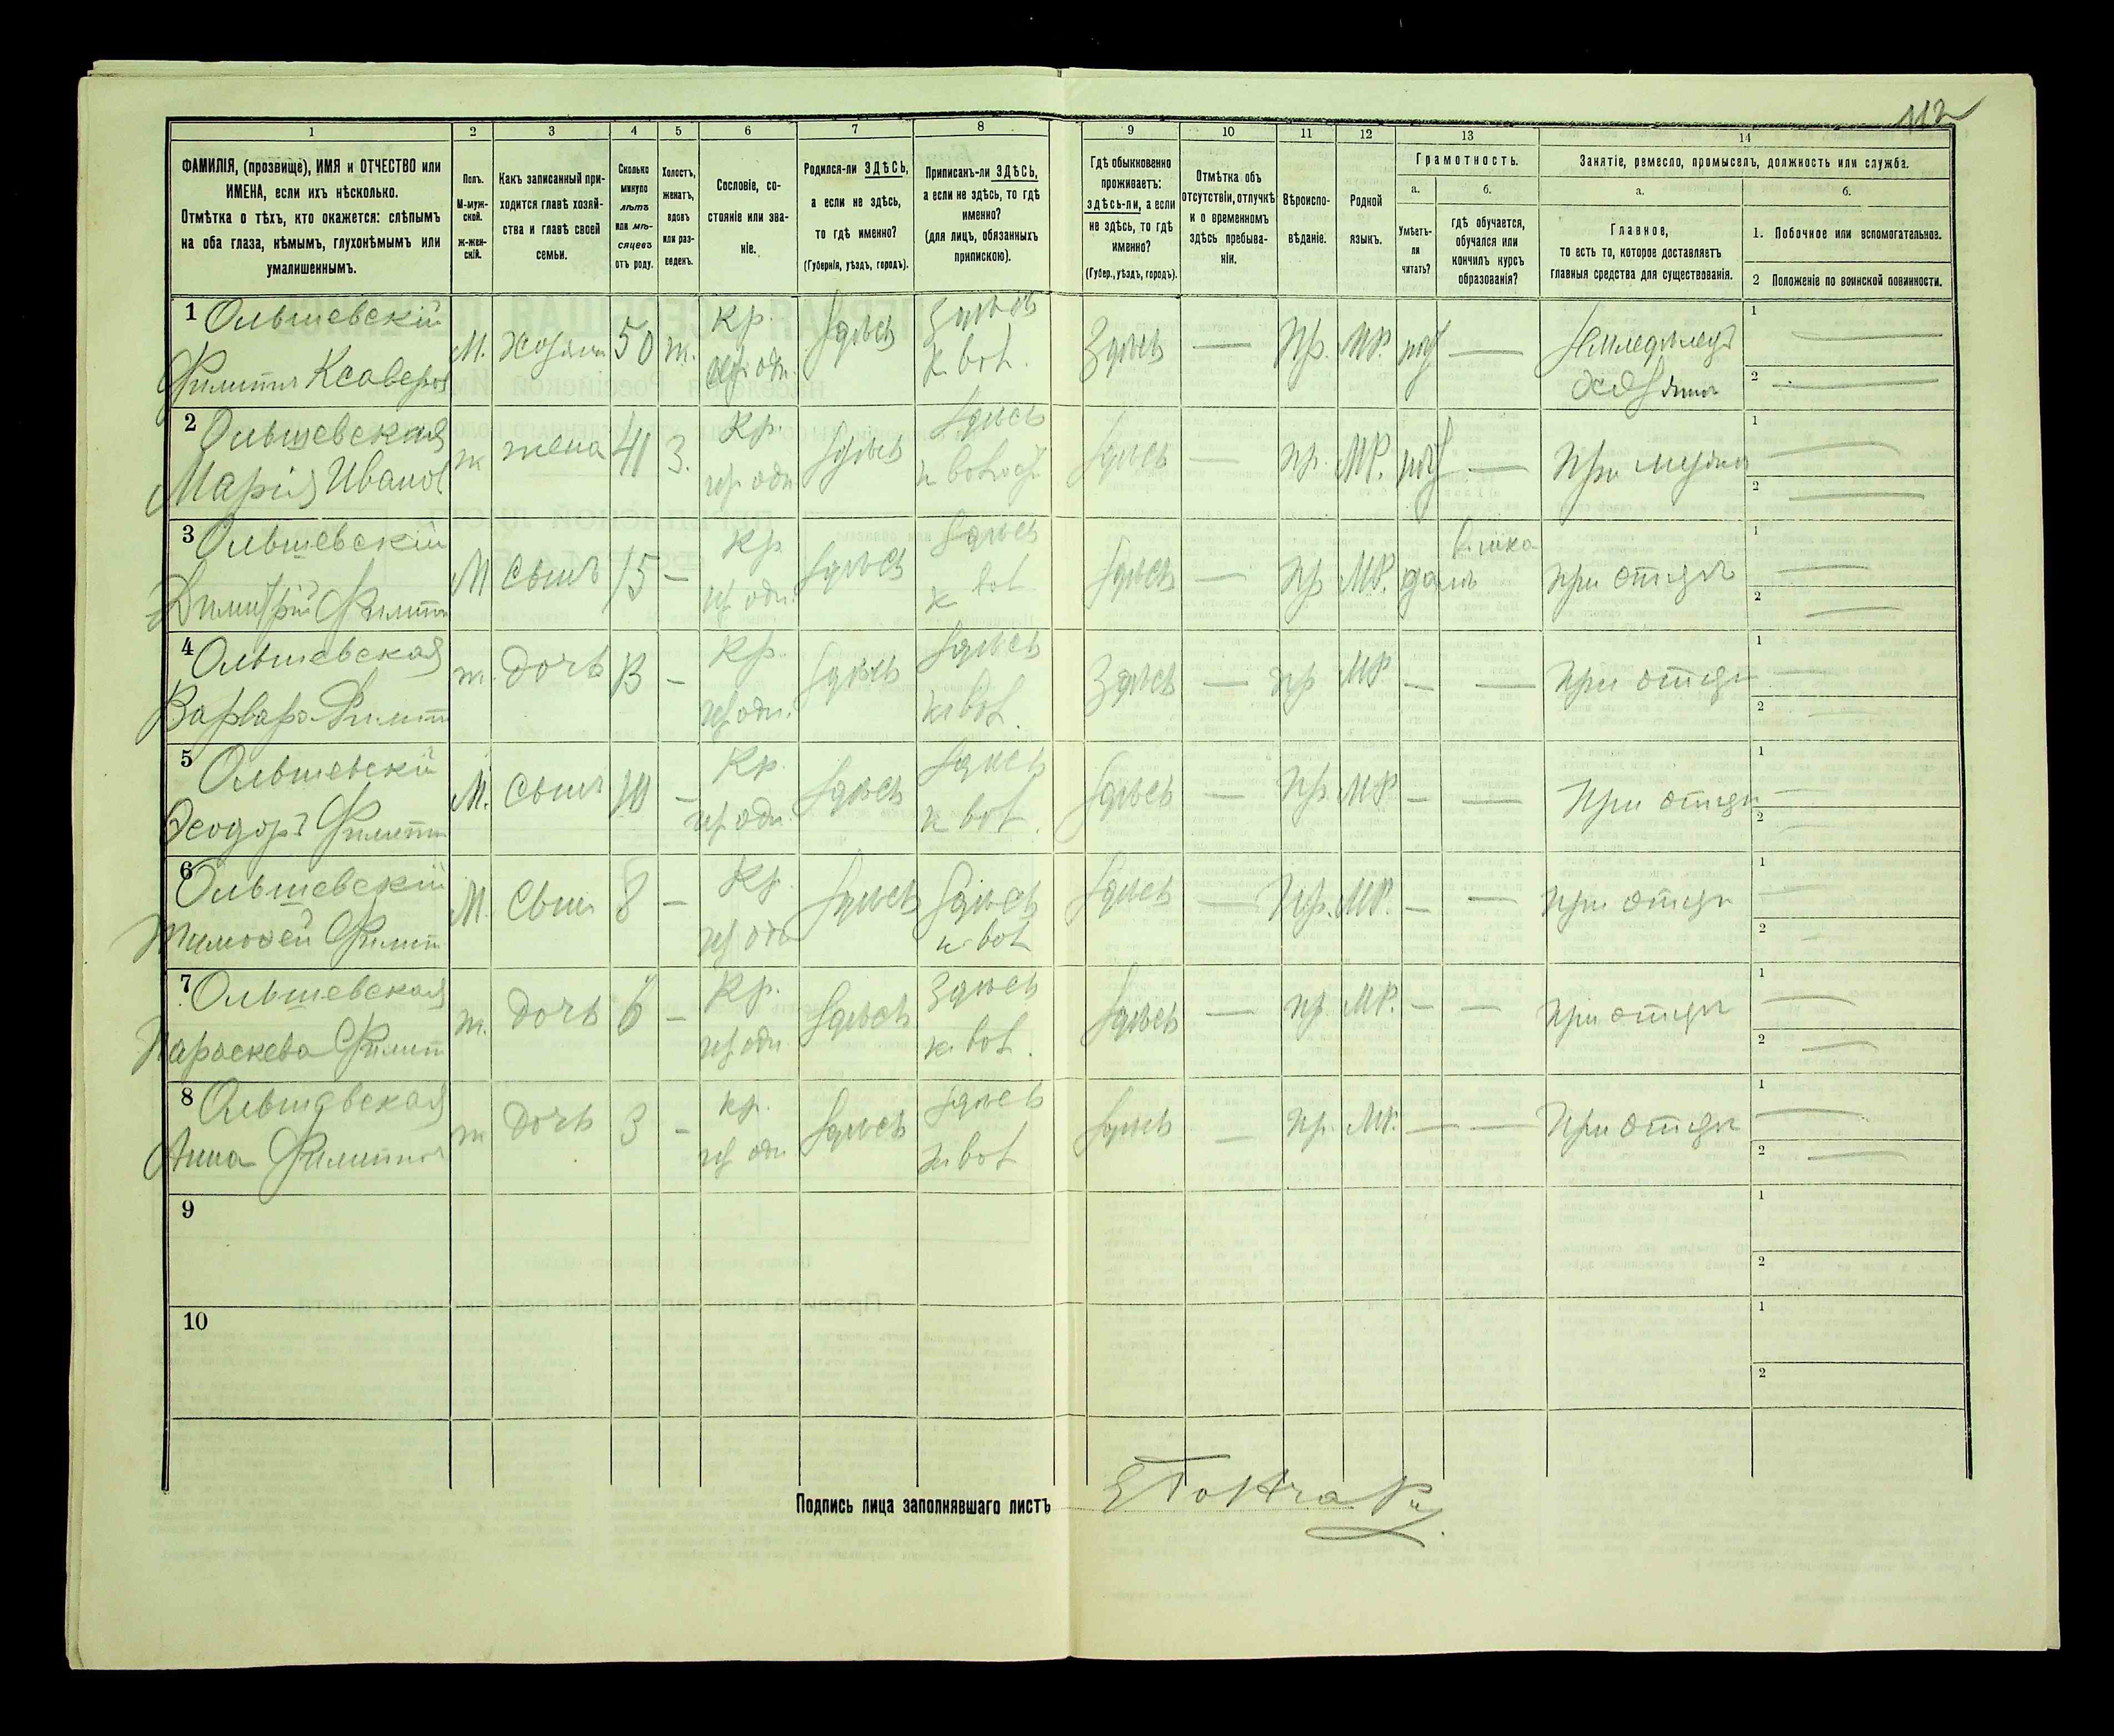 112
1 2 3 4 5 6 7 8 9 10 11 12 13 14
ФАМИЛІЯ, (прозвище), ИМЯ и ОТЧЕСТВО или
ИМЕНА, если ихъ нѣсколько.
Отмѣтка о тѣхъ, кто окажется: слѣпымъ
на оба глаза, нѣмымъ, глухонѣмымъ или
умалишеннымъ.
Полъ.
М-муж-
ской.
ж-жен-
скій.
Какъ записанный при-
ходится главѣ хозяй-
ства и главѣ своей
семьи.
Сколько
минуло
лѣтъ
или мѣ-
сяцевъ
отъ роду.
Холостъ,
женатъ,
вдовъ
или раз-
веденъ.
Сословіе, со-
стояніе или зва-
ніе.
Родился-ли ЗДѢСЬ,
а если не здѣсь,
то гдѣ именно?
(Губернія, уѣздъ, городъ).
Приписанъ-ли ЗДѢСЬ,
а если не здѣсь, то гдѣ
именно?
(для лицъ, обязанныхъ
припискою).
Гдѣ обыкновенно
проживаетъ:
здѣсь-ли, а если
не здѣсь, то гдѣ
именно?
(Губер., уѣздъ, городъ).
Отмѣтка объ
отсутствіи, отлучкѣ
и о временномъ
здѣсь пребыва-
ніи.
Вѣроиспо-
вѣданіе.
Родной
языкъ.
Грамотность.
а.
Умѣетъ-
ли
читать?
б.
гдѣ обучается,
обучался или
кончилъ курсъ
образованія?
Занятіе, ремесло, промыселъ, должность или служба.
а.
Главное,
то есть то, которое доставляетъ
главныя средства для существованія.
б.
1. Побочное или вспомогательное.
2 Положеніе по воинской повинности.
1 Ольшевскій
Филиппъ Ксаверов
М. 50 ж. Кр. Здѣсь Здѣсь Здѣсь — Пр. МР. — 1 —
2 —
2 Ольшевская
Марія Иванов
ж жена 41 З. Кр. Здѣсь Здѣсь Здѣсь — пр. МР. — При 1 —
2 —
3 Ольшевскій
Димитрій Филипп
М сынъ 15 — Кр Здѣсь Здѣсь Здѣсь — пр МР. при отцѣ 1 —
2 —
4 Ольшевская
Варвара Филип
ж. дочь 13 — Кр. Здѣсь Здѣсь Здѣсь — пр МР — — При отцѣ 1 —
2 —
5 Ольшевскій
Ѳеодоръ Филипп
М. сынъ 10 — Кр. Здѣсь Здѣсь Здѣсь — Пр МР — — При отцѣ 1 —
2 —
6 Ольшевскій
Тимоѳей Филип
М. Сынъ 8 — Кр. Здѣсь Здѣсь Здѣсь — Пр. МР. — — При отцѣ 1 —
2 —
7 Ольшевская
Параскева Филип
ж. дочь 6 — Кр. Здѣсь Здѣсь Здѣсь — пр. МР. — — При отцѣ 1 —
2 —
8 Ольшевская
Анна Филиппов
ж дочь 3 — кр. Здѣсь Здѣсь Здѣсь — пр. МР. — — При отцѣ 1 —
2 —
9 1
2
10 1
2
Подпись лица заполнявшаго листъ